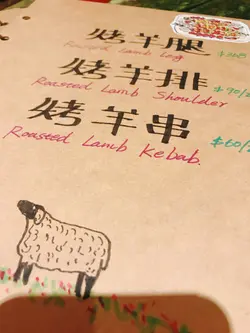 烤羊腿
Roasted Lamb Leg
烤羊排
Roasted Lamb Shoulder
烤羊串
Roasted Lamb Kebab.